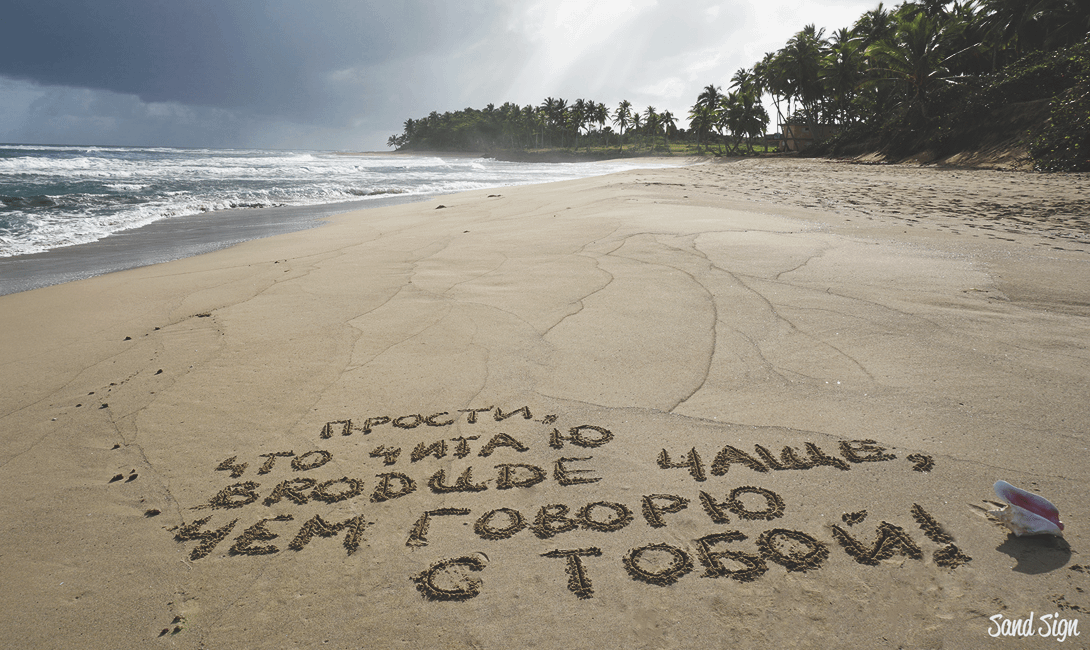 ПРОСТИ,
ЧТО ЧИТАЮ
BRODЦDE ЧАЩЕ,
ЧЕМ ГОВОРЮ
С ТОБОЙ!
Sand Sign